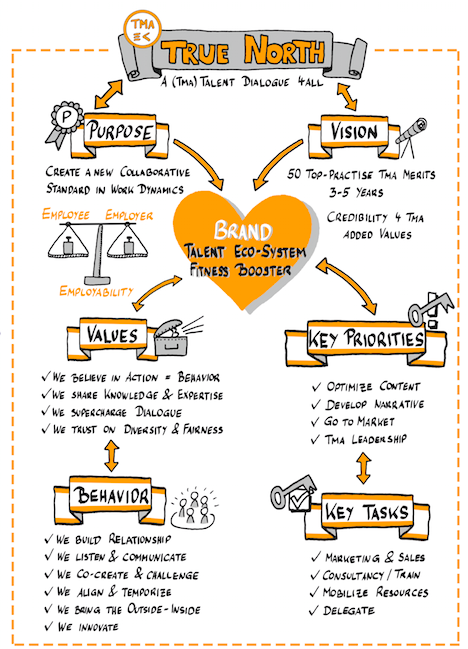 TMA
TRUE NORTH
A (TMA) TALENT DIALOGUE 4ALL
P
PURPOSE
CREATE A NEW COLLABORATIVE
STANDARD IN WORK DYNAMICS
VISION
50 TOP-PRACTISE TMA MERITS
3-5 YEARS
CREDIBILITY 4 TMA
ADDED VALUES
EMPLOYEE EMPLOYER
EMPLOYABILITY
BRAND
TALENT ECO-SYSTEM
FITNESS BOOSTER
VALUES
✓ WE BELIEVE IN ACTION = BEHAVIOR
✓ WE SHARE KNOWLEDGE & EXPERTISE
✓ WE SUPERCHARGE DIALOGUE
✓ WE TRUST ON DIVERSITY & FAIRNESS
KEY PRIORITIES
✓ OPTIMIZE CONTENT
✓ DEVELOP NARRATIVE
✓ GO TO MARKET
✓ TMA LEADERSHIP
BEHAVIOR
✓ WE BUILD RELATIONSHIP
✓ WE LISTEN & COMMUNICATE
✓ WE CO-CREATE & CHALLENGE
✓ WE ALIGN & TEMPORIZE
✓ WE BRING THE OUTSIDE-INSIDE
✓ WE INNOVATE
KEY TASKS
✓ MARKETING & SALES
✓ CONSULTANCY / TRAIN
✓ MOBILIZE RESOURCES
✓ DELEGATE